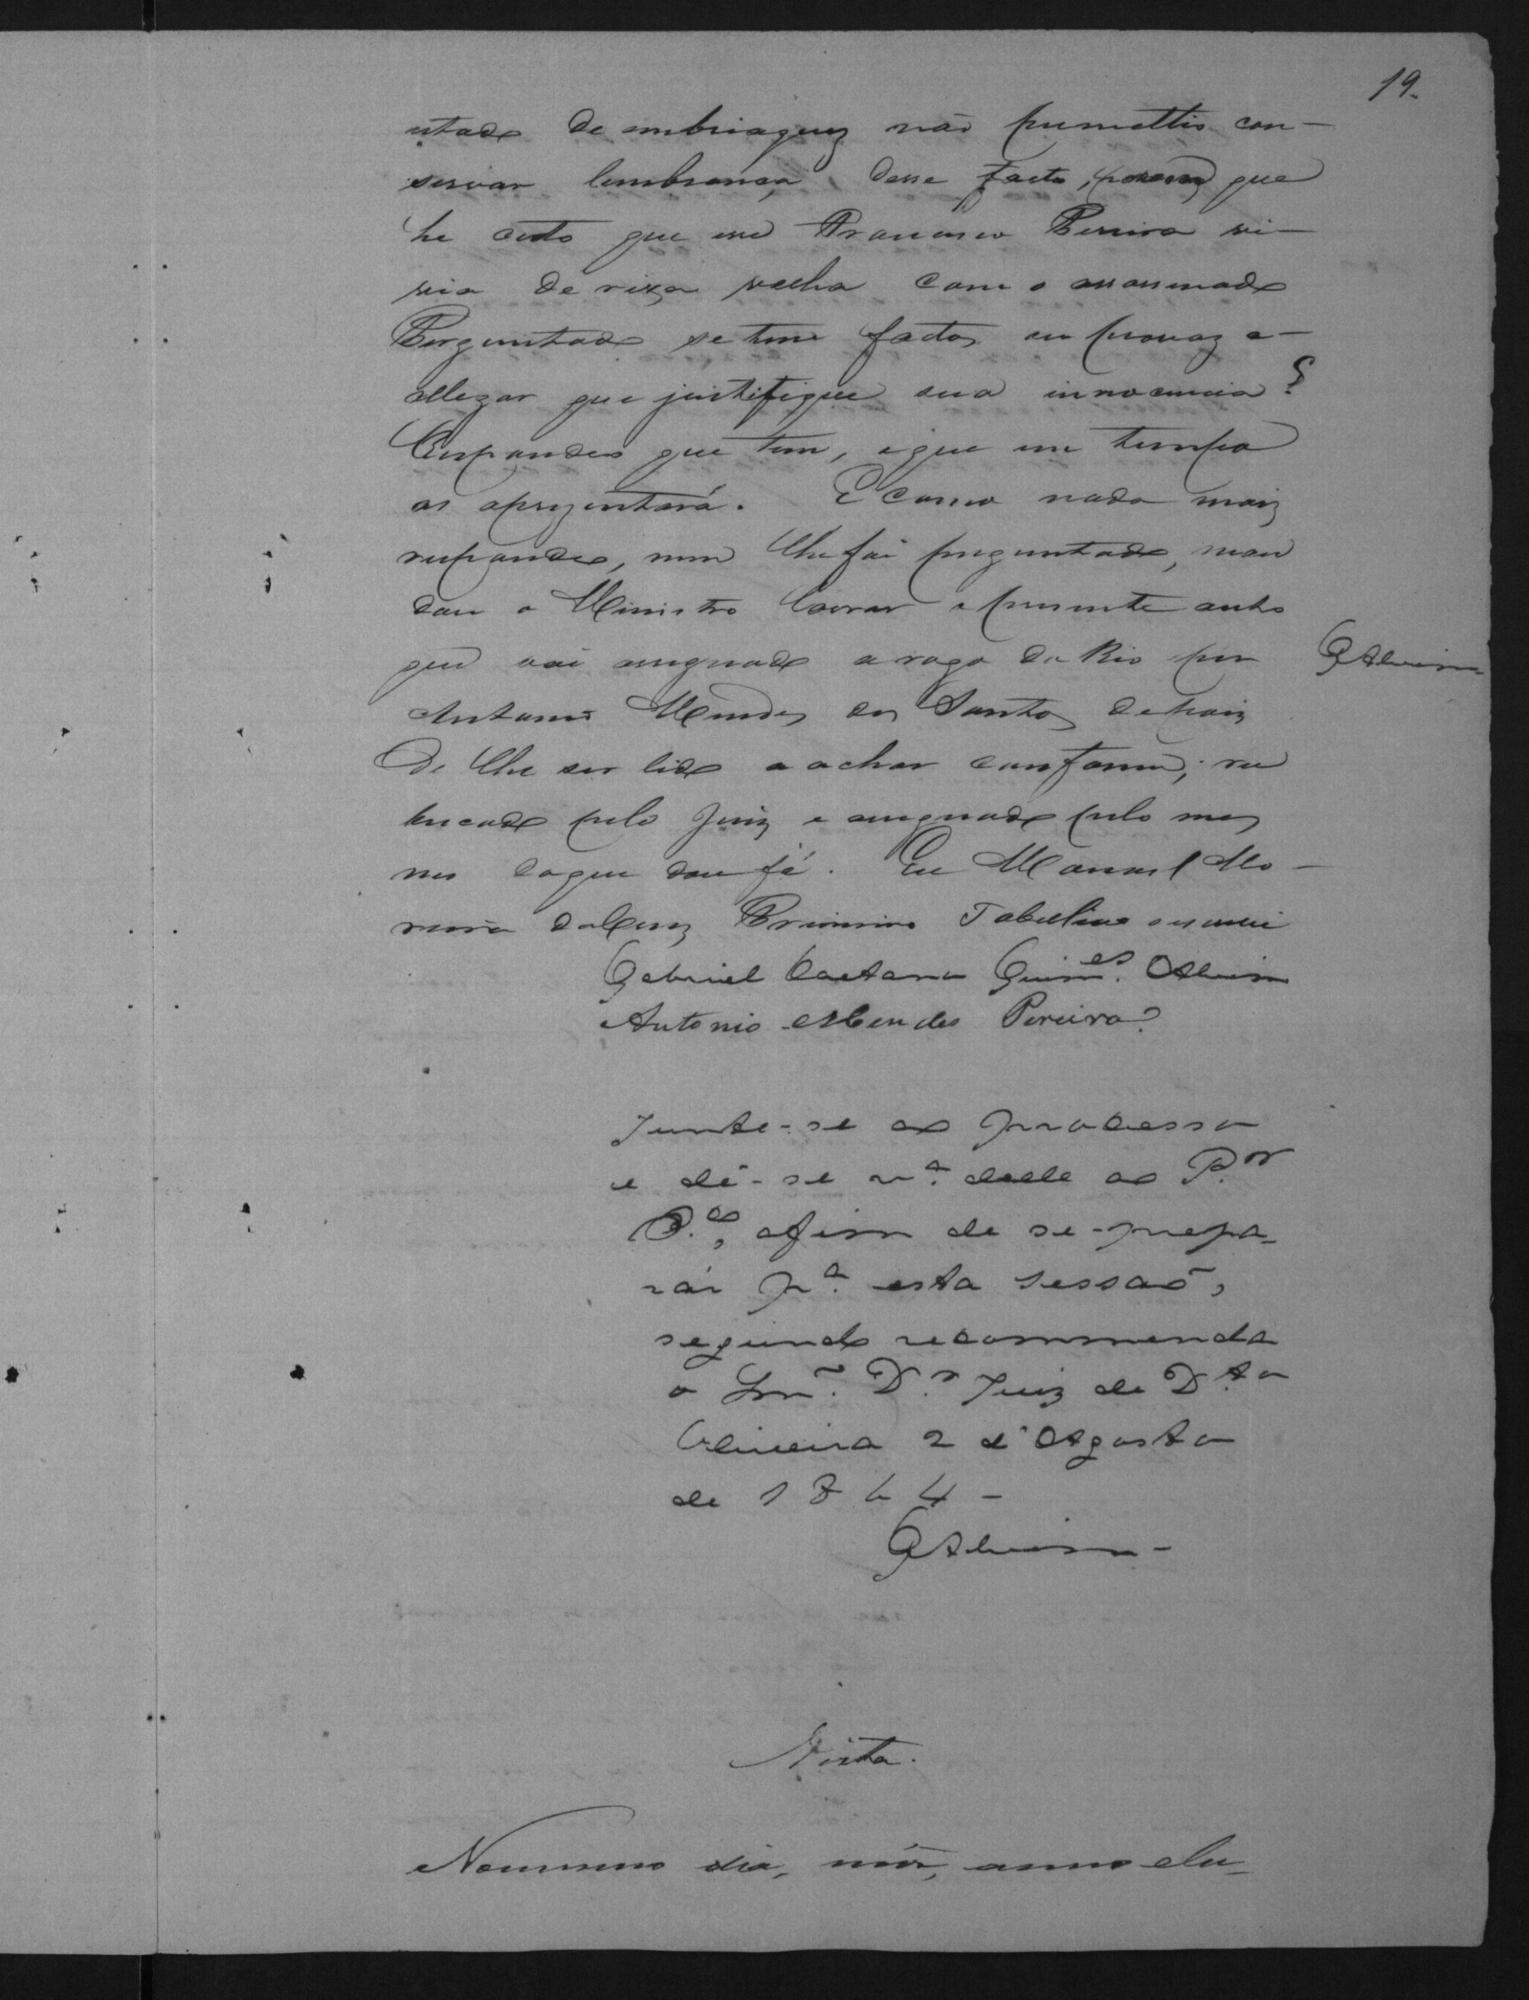 19.
estado de embriaguez não permettio con-
servar lembrança desse facto, porem que
he certo que esse Francisco Pereira vi-
via de rixa velha com o assassinado
Perguntado se tem factos ou provaz a-
allegar que justifique sua innocencia?
Respondeo que tem, e que em tempo
os aprezentará. E como nada maiz
respondeo, nem lhe foi perguntado, man
dou o Ministro lavrar o presente auto
que vai assignado a rogo do Rio por
GAlvim
Antonio Mendes dos Santos depoiz
de lhe ser lido e achar conforme, ru
bricado pelo Juiz e assignado pelo mes
mo do que dou fé. Eu Manoel Mo-
reira da Cruz Primeiro Tabelião escrevi
Gabriel Caetano Guim.es Alvim
Antonio Mendes Pereira
Junte-se ao processo
e dê-se v.ª delle ao P.or
P.co, afim de se-prepa-
rár p.ª esta sessaõ,
segundo recommenda
o Snr̃. D.r Juiz de D.to
Oliveira 2 d'Agosto
de 1864-
GAlvim-
Vista.
No mesmo dia, mês, anno e lu-